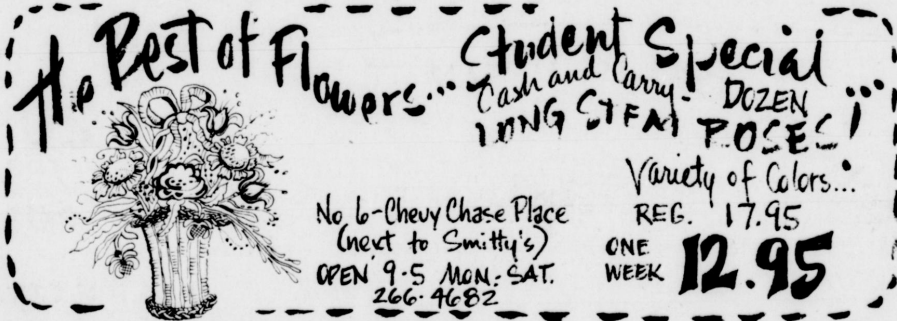 The Best of Flowers...
Student Special
Cash and Carry-
LONG STEM DOZEN ROSES!...
Variety of Colors...
REG. 17.95
ONE WEEK 12.95
No. 6-Chevy Chase Place
(next to Smitty's)
OPEN 9-5 MON.-SAT.
266-4682